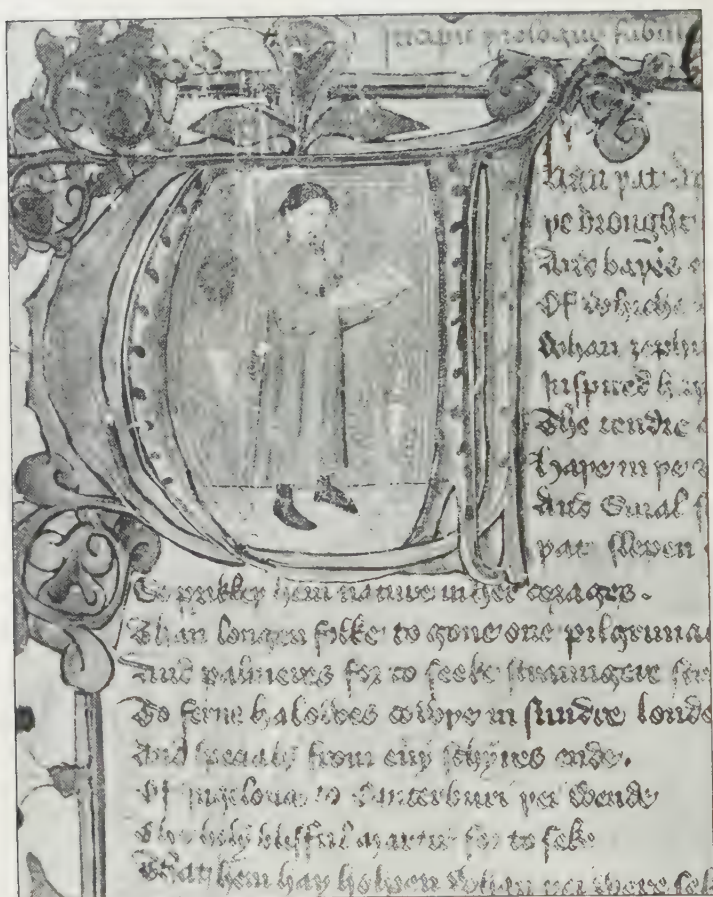 prologus fabul
han þat
þe drouȝht
And baþed
Of whiche
Whan zephir
Inspired haþ
The tendre
haþe in þe
And Smal
þat slepen
So prikkeþ hem nature in her corages.
Than longen folke to gone one pilgrimag
And palmeres for to seeke straungere
To ferne halowes cowþe in sundre londe
And specialy from eny schyres ende.
Of yngelond to Canterburi þei wende
The holy blisful martir for to seke
That hem haþ holpen whan þei were sek